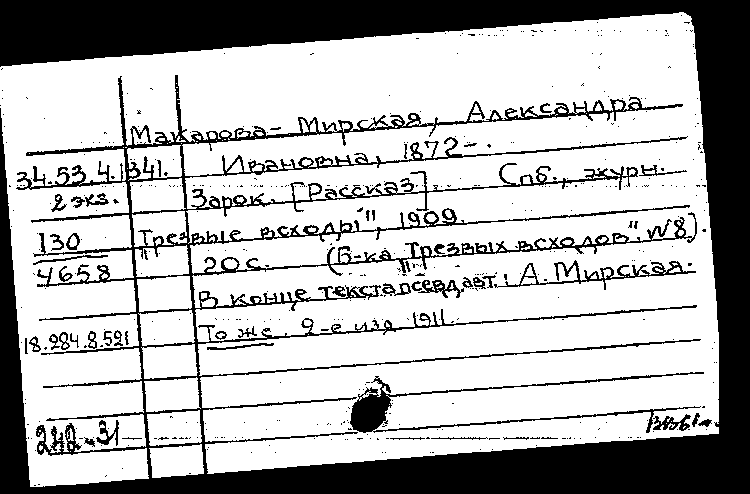 Макарова-Мирская, Александра
34.53.4.341. Ивановна, 1872-.
2 экз. Зарок. [Рассказ]. Спб., журн.
130 "Трезвые всходы", 1909.
4658 20 с. (Б-ка "Трезвых всходов". № 8).
В конце текста псевд. авт.: А. Мирская.
18.284.8.521 То же. 2-е изд. 1911.